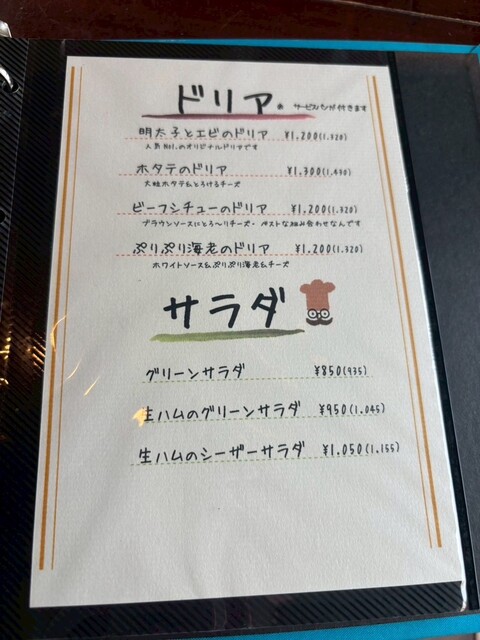 ドリア ※サービスパンが付きます
明太子とエビのドリア ¥1,200(1.320)
人気No1.のオリジナルドリアです
ホタテのドリア ¥1,300(1.430)
大粒ホタテ&とろけるチーズ
ビーフシチューのドリア ¥1,200(1.320)
ブラウンソースにとろ〜りチーズ・ベストな組み合わせなんです
ぷりぷり海老のドリア ¥1,200(1.320)
ホワイトソース&ぷりぷり海老&チーズ
サラダ
グリーンサラダ ¥850(935)
生ハムのグリーンサラダ ¥950(1.045)
生ハムのシーザーサラダ ¥1.050(1.155)